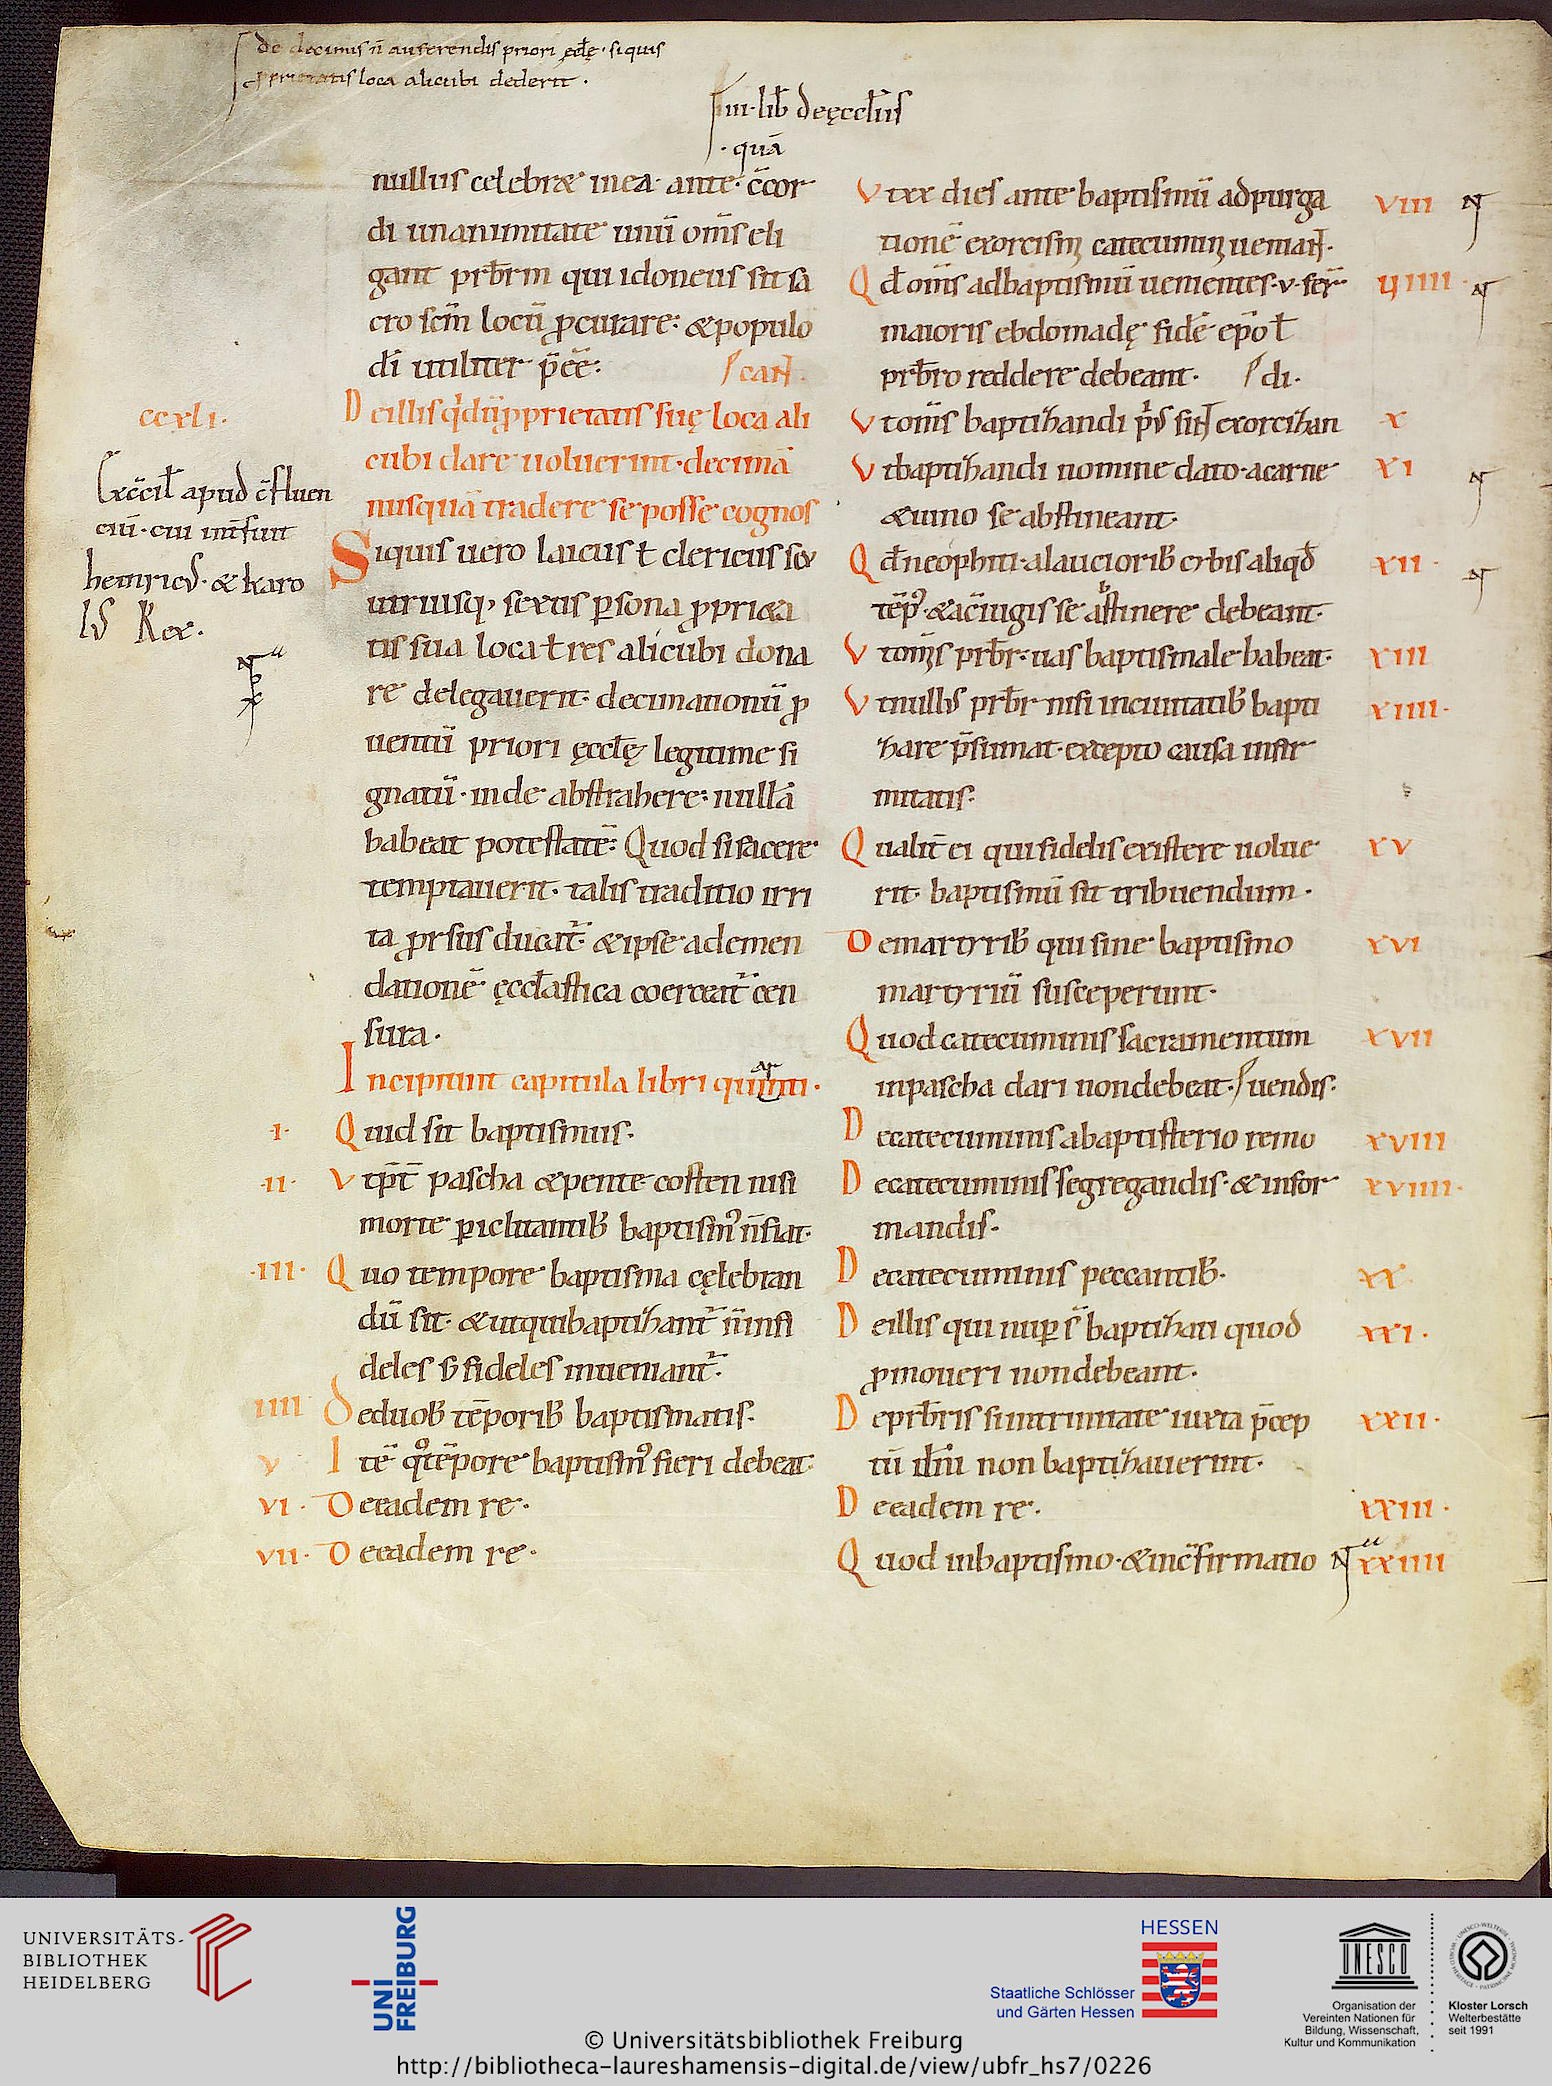 de decimis n̄ auferendis priori ęcclę· si quis
ꝓprietatis loca alicubi dederit ·
iii·lib̄ de ęccłiis
· quā
nullus celebr& in ea· ante· c̄cor
di unanimitate unū om̄s eli
gant prb̄rm qui idoneus sit sa
cro scm̄ locū ꝓcurare· & populo
dī utiliter p̄ēē·
cant·
ccxli·
De illis q'dū ꝓprietatis suę loca ali
cubi dare uoluerint· decimā
nusquā tradere se posse cognos
Ex c̄cil̄ apud c̄fluen
ciū· cui int̄fuit
heinricꝰ· & karo
lꝰ Rex.
Si quis uero laicus ł clericus seu
utriusq; sexus ꝑsona ꝓprieta
tis sua loca ł res alicubi dona
re delegauerit· decimationū ꝓ
uentū priori ęcclę legitime si
gnatū· inde abstrahere· nullā
habeat potestatē· Quod si facere
temptauerit· talis traditio irri
ta ꝓrsus ducat̄· & ipse ad emen
dationē ęccłastica coerceat̄ cen
sura·
Incipiunt capitula libri quinti·
·i· Quid sit baptismus·
·ii· Vt p̄t pascha & pente costen nisi
morte ꝑiclitantibꝰ baptismꝰ n̄ fiat·
·iii· Quo tempore baptisma cęlebran
dū sit· & ut qui baptizant̄ n̄ infi
deles sꝫ fideles inueniant̄·
iiii De duobꝰ tēporibꝰ baptismatis·
v Itē qͦ tēpore baptismꝰ fieri debeat·
vi· De eadem re·
vii· De eadem re·
Vt xx dies ante baptismū ad purga viii
tionē exorcismi catecumini ueniant·
Qd̄ om̄s ad baptismū uenientes· v· fer̄ viiii·
maioris ebdomadę fidē ep̄o ł
prb̄ro reddere debeant· di·
Vt om̄s baptizandi p'us sint exorcizan x
Vt baptizandi nomine dato· a carne xi
& uino se abstineant·
Qd̄ neophiti· a laucioribꝰ erbis aliqd̄ xii·
tēpꝰ· & a c̄iugis se abstinere debeant·
Vt om̄is prb̄r· uas baptismale habeat· xiii
Vt nullꝰ prb̄r nisi in ciuitatibꝰ bapti xiiii·
zare p̄sumat· excepto causa infir
mitatis·
Qualit̄ ei qui fidelis existere uolue xv
rit· baptismū sit tribuendum·
De martyribꝰ qui sine baptismo xvi
martyriū susceperunt·
Quod catecuminis sacramentum xvii
in pascha dari non debeat· uendis·
De catecuminis a baptisterio remo xviii
De catecuminis segregandis· & infor xviiii·
mandis·
De catecuminis peccantibꝰ· xx
De illis qui nuꝑ s̄ baptizati quod xxi·
ꝓmoueri non debeant·
De prb̄ris si in trinitate iuxta p̄cep xxii·
tū dn̄i non baptizauerint·
De eadem re· xxiii·
Quod in baptismo· & in c̄firmatio xxiiii
UNIVERSITÄTS-
BIBLIOTHEK
HEIDELBERG
UNI
FREIBURG
HESSEN
Staatliche Schlösser
und Gärten Hessen
UNESCO
Organisation der
Vereinten Nationen für
Bildung, Wissenschaft,
Kultur und Kommunikation
Kloster Lorsch
Welterbestätte
seit 1991
© Universitätsbibliothek Freiburg
http://bibliotheca-laureshamensis-digital.de/view/ubfr_hs7/0226